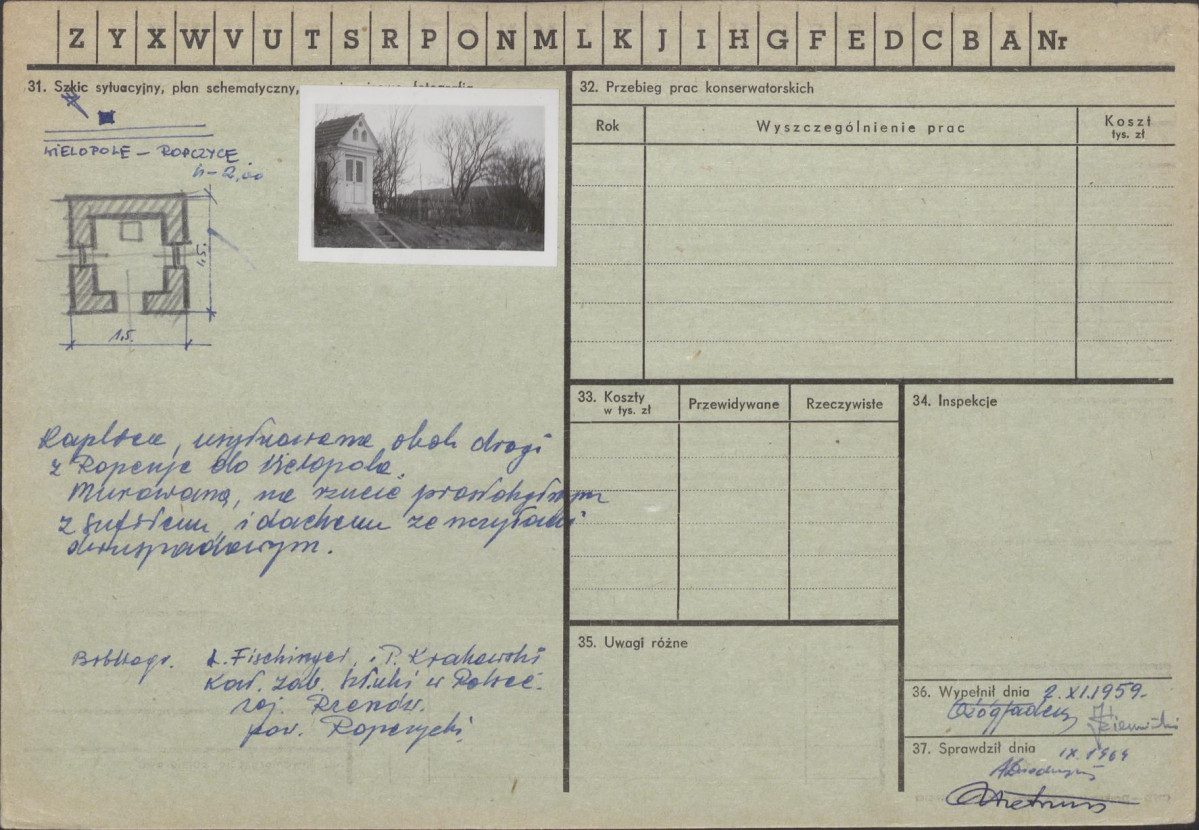 Z Y X W V U T S R P O N M L K J I H G F E D C B A Nr
31. Szkic sytuacyjny, plan schematyczny, fotografia
WIELOPOLE – ROPCZYCE
h – 2,00
1,5.
1,5.
Kaplica, usytuowana obok drogi
z Ropczyc do Wielopola.
Murowana, na rzucie prostokątnym
z sufitem, i dachem ze szczytami
dwuspadowym.
Bibliogr. Fischinger, P. Krakowski
Kat. Zab. Sztuki w Polsce.
woj. Rzeszów.
pow. Ropczycki
32. Przebieg prac konserwatorskich
Rok
Wyszczególnienie prac
Koszt
tys. zł
33. Koszty
w tys. zł
Przewidywane
Rzeczywiste
34. Inspekcje
35. Uwagi różne
36. Wypełnił dnia 2.XI.1959
37. Sprawdził dnia IX.1964